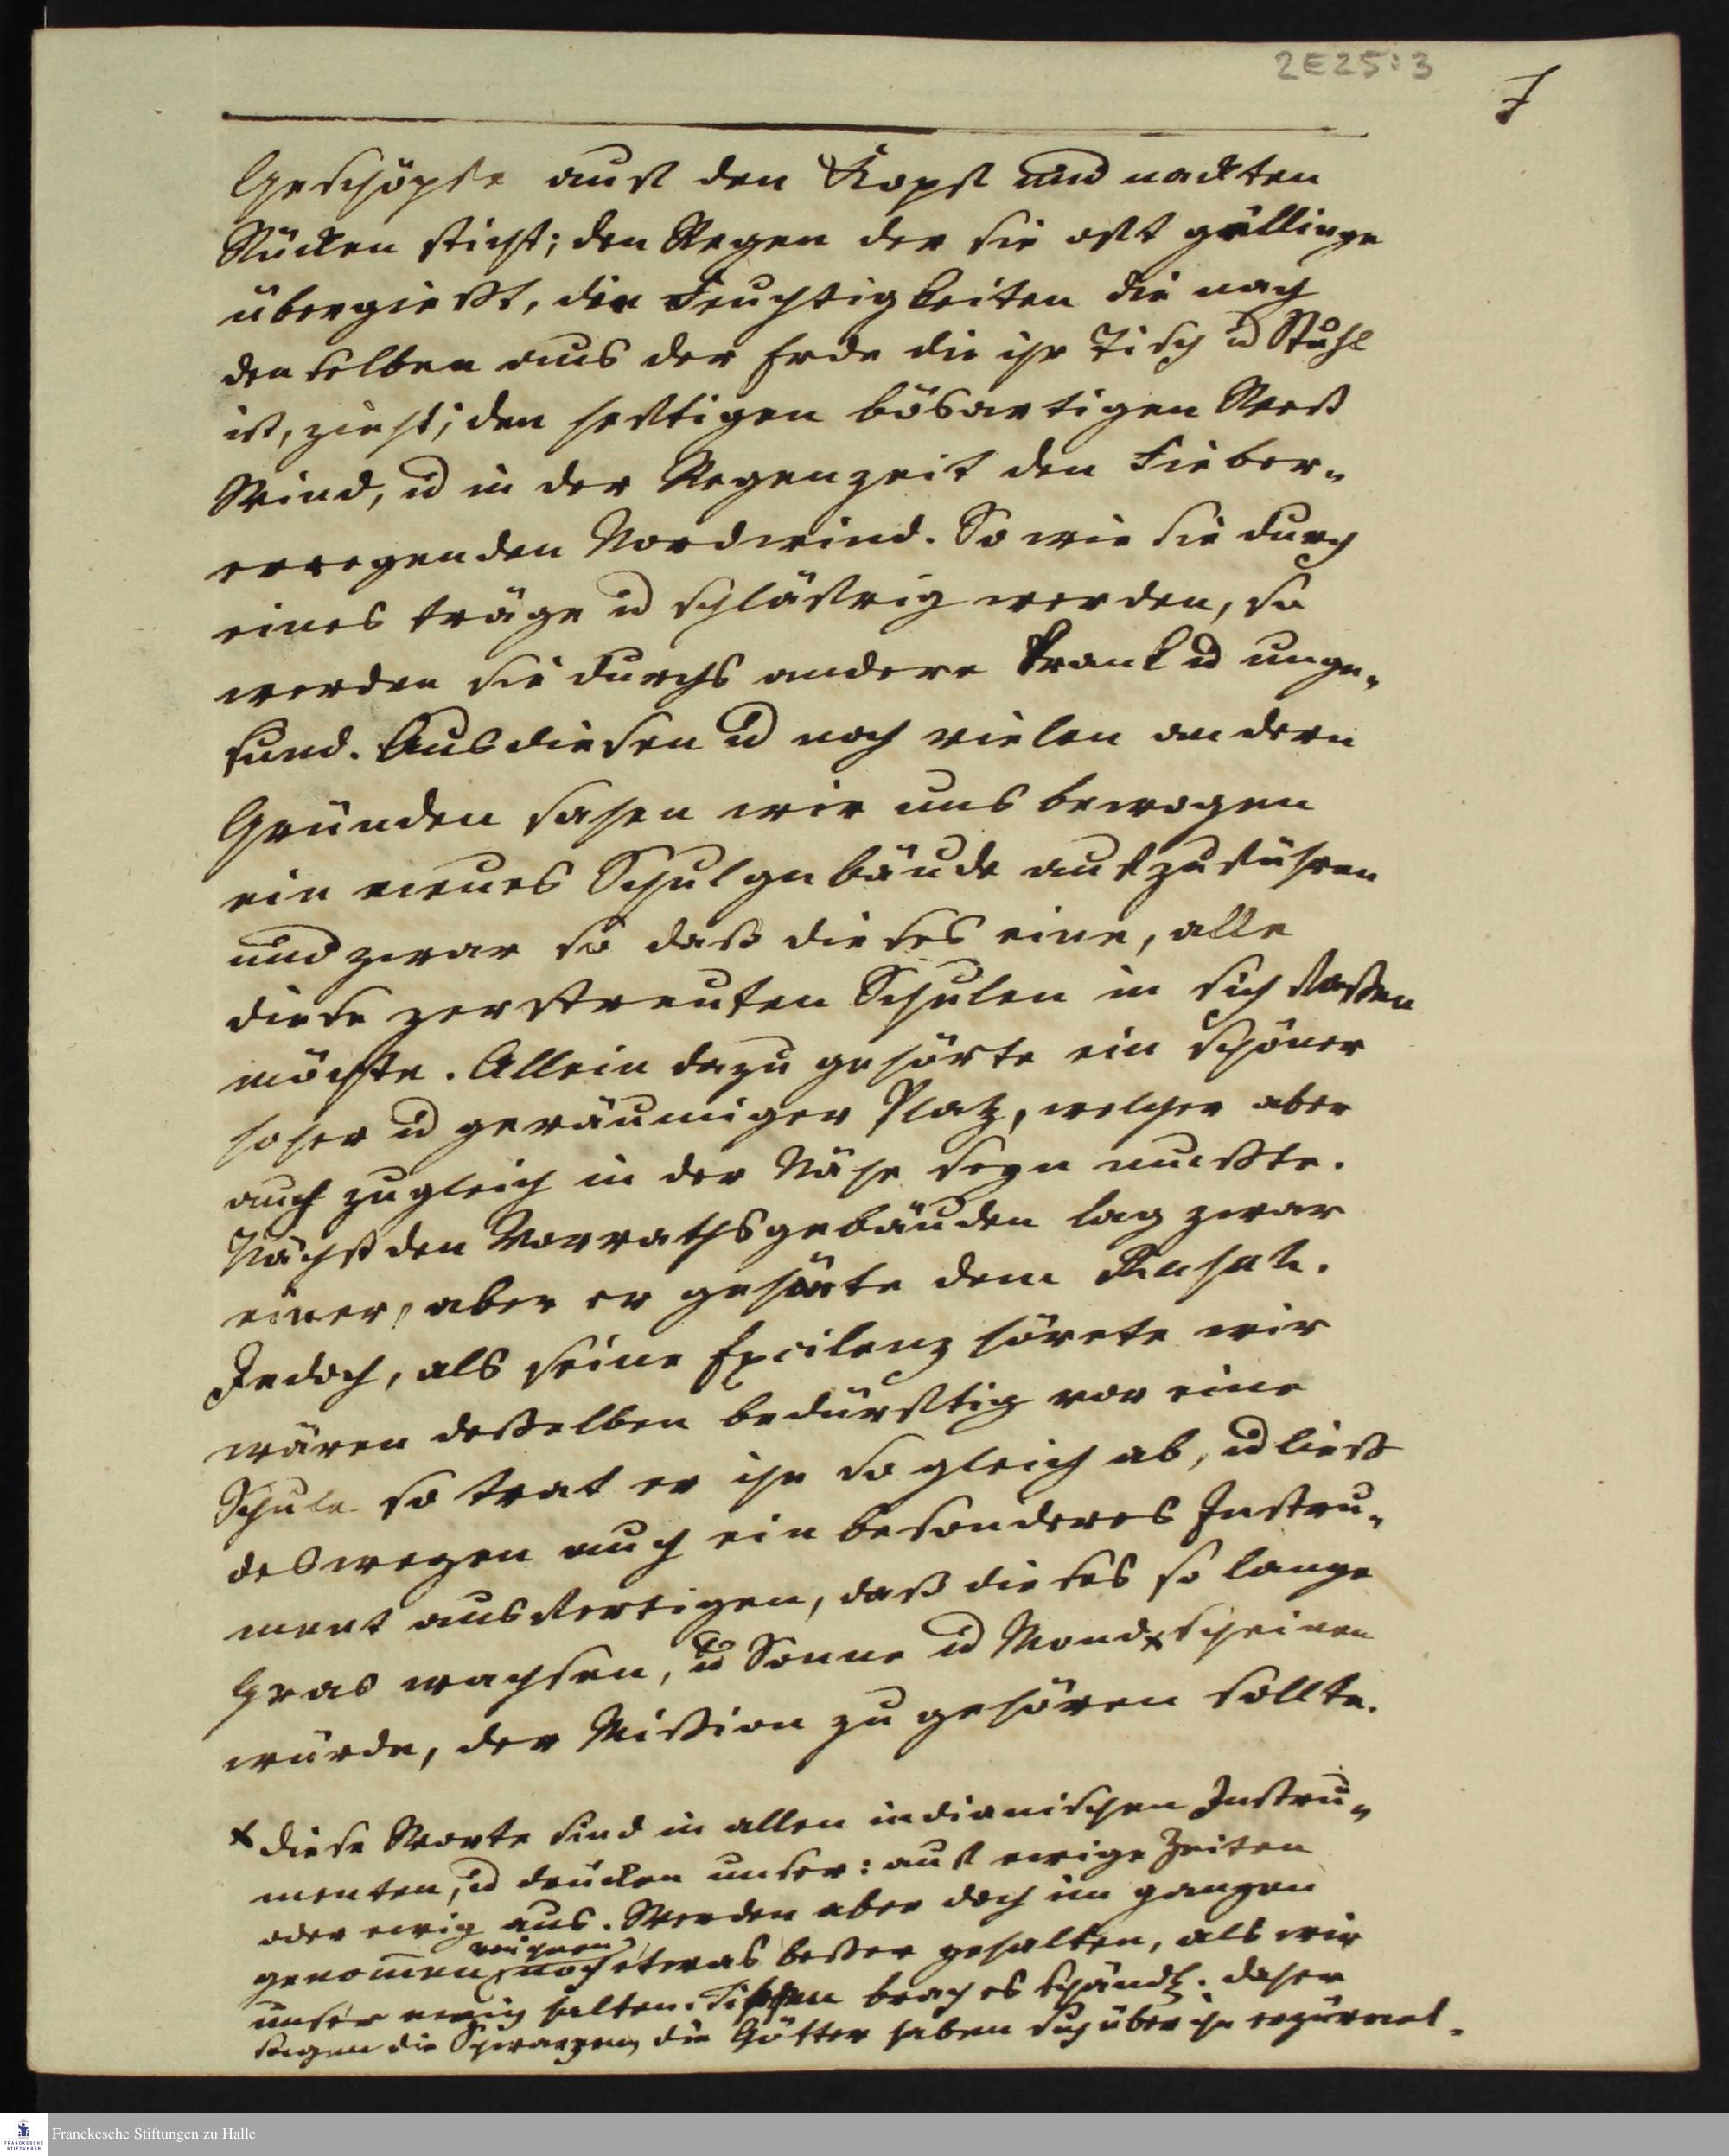 2E25:3
7
Geschöpfe auf den Kopf und nackten
Rücken sticht; den Regen der sie oft gällinge
übergießt, die Feuchtigkeiten die nach
denselben aus der Erde die ihr Tisch ud Stuhl
ist, zieht; den heftigen bösartigen West
Wind, ud in der Regenzeit den Fieber-
erregenden Nordwind. So wie sie durch
eines träge ud schläfrig werden, so
werden sie durchs andere krank ud unge-
sund. Aus diesen ud noch vielen andern
Gründen sahen wir uns bewogen
ein neues Schulgebäude aufzuführen
und zwar so daß dieses eine, alle
diese zerstreuten Schulen in sich faßen
möchte. Allein dazu gehörte ein schöner
hoher ud geräumiger Platz, welcher aber
auch zugleich in der Nähe seyn mußte.
Nächst den Vorrathsgebäuden lag zwar
einer, aber er gehörte dem
Jedoch, als seine Excilenz hörete wir
wären deßelben bedürftig vor eine
Schule so trat er ihn sogleich ab, ud ließ
deswegen auch ein besonderes Instru-
ment ausfertigen, daß dieses so lange
Gras wachsen, ud Sonne ud Mond x scheinen
würde, der Mißion zu gehören sollte.
x diese Worte sind in allen indianischen Instru-
menten, ud drücken unser: auf ewige Zeiten
oder ewig aus. Werden aber doch im ganzen
genommen, noch etwas beßer gehalten, als wir
unser ewig halten. brach es schändl. daher
sagen die Schwarzen, die Götter haben sich über ihn erzürnet.
Franckesche Stiftungen zu Halle
FRANCKESCHE
STIFTUNGEN